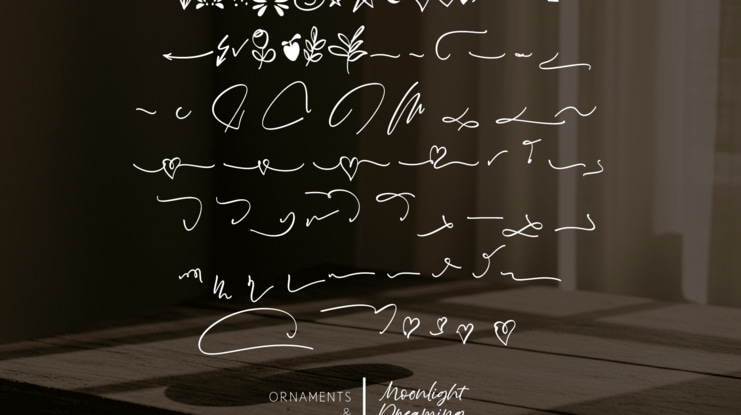 ORNAMENTS
&
Moonlight
Dreaming